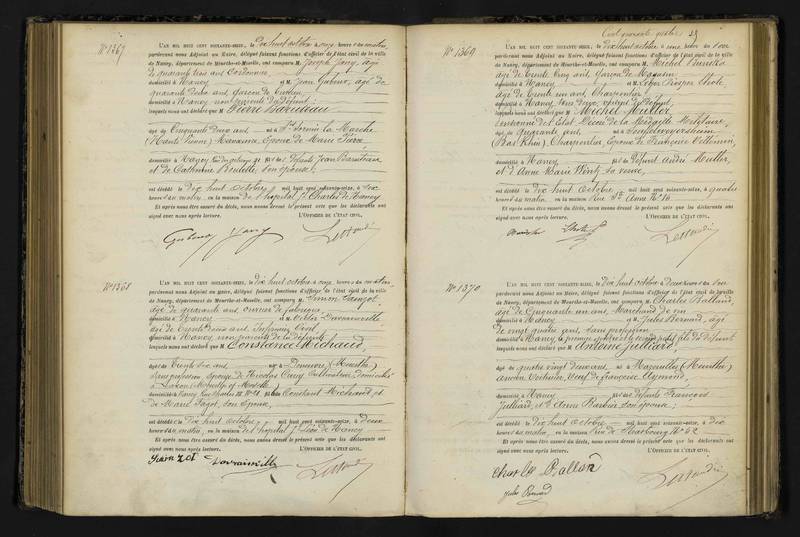 Nº 1367
L'AN MIL HUIT CENT SOIXANTE-SEIZE, le dix huit octobre à onze heures du matin,
pardevant nous Adjoint au Maire, délégué faisant fonctions d'officier de l'état civil de la ville
de Nancy, département de Meurthe-et-Moselle, ont comparu M. Joseph Jany, âgé
de quarante trois ans, Cordonnier,
domicilié à Nancy et M. Jean Gubeno, âgé de
quarante deux ans, Garçon de
domicilié à Nancy, non parents du défunt;
lesquels nous ont déclaré que M. Pierre
âgé de Cinquante deux ans, né à St
(Haute Vienne) Manœuvre, Epoux de Marie
domicilié à Nancy fils des défunts Jean
et de Catherine son épouse;
est décédé le dix huit octobre, mil huit cent soixante-seize, à dix
heures du matin, en la maison de l'hospital St Charles de Nancy
Et après nous être assuré du décès, nous avons dressé le présent acte que les déclarants ont
signé avec nous après lecture. L'OFFICIER DE L'ÉTAT CIVIL,
Gubeno Jany
Nº 1368
L'AN MIL HUIT CENT SOIXANTE-SEIZE, le dix huit octobre à onze heures du matin
pardevant nous Adjoint au Maire, délégué faisant fonctions d'officier de l'état civil de la ville
de Nancy, département de Meurthe-et-Moselle, ont comparu M. Simon
âgé de quarante ans, ouvrier de fabrique,
domicilié à Nancy et M. Victor
âgé de Trente deux ans, Infirmier Civil,
domicilié à Nancy non parents de la défunte
lesquels nous ont déclaré que M Constance Michaud,
âgée de Trente six ans, née à Deneuvre (Meurthe)
sans profession, épouse de Nicolas Cuny, Cultivateur, domiciliés
à (Meurthe et Moselle)
domiciliée à Nancy, fille de Constant Michaud, et
de Marie son épouse,
est décédée le dix huit octobre, mil huit cent soixante-seize, à deux
heures du matin, en la maison de l'hospital St Léon de Nancy
Et après nous être assuré du décès, nous avons dressé le présent acte que les déclarants ont
signé avec nous après lecture. L'OFFICIER DE L'ÉTAT CIVIL,
Cent quarante quatre
Nº 1369
L'AN MIL HUIT CENT SOIXANTE-SEIZE, le dix huit octobre à onze heures du
pardevant nous Adjoint au Maire, délégué faisant fonctions d'officier de l'état civil de la ville
de Nancy, département de Meurthe-et-Moselle, ont comparu M. Michel
âgé de Trente cinq ans, Garçon de Magasin
domicilié à Nancy et M. Prosper
âgé de Trente un ans, Charpentier,
domicilié à Nancy, tous deux du défunt;
lesquels nous ont déclaré que M. Michel Muller,
Pensionné de l'Etat, Décoré de la Médaille Militaire,
âgé de quarante ans, né à
(Bas Rhin) Charpentier, Epoux de Françoise Villemin,
domicilié à Nancy fils de défunt André Muller,
et d'Anne Marie Wirtz, sa veuve,
est décédé le dix huit octobre mil huit cent soixante-seize, à quatre
heures du matin, en la maison Rue Ste Anne Nº 16
Et après nous être assuré du décès, nous avons dressé le présent acte que les déclarants ont
signé avec nous après lecture. L'OFFICIER DE L'ÉTAT CIVIL,
Nº 1370
L'AN MIL HUIT CENT SOIXANTE-SEIZE, le dix huit octobre à deux heures du soir
pardevant nous Adjoint au Maire, délégué faisant fonctions d'officier de l'état civil de la ville
de Nancy, département de Meurthe-et-Moselle, ont comparu M. Charles Balland,
âgé de Cinquante un ans, Marchand de vin
domicilié à Nancy et M. Jules Bernard, âgé
de vingt quatre ans, sans profession
domicilié à Nancy, le premier le second petit fils du défunt
lesquels nous ont déclaré que M. Antoine Julliard,
âgé de quatre vingt deux ans, né à (Meurthe)
ancien Voiturier, Veuf de Françoise Aymond,
domicilié à Nancy fils des défunts François
Julliard, et d'Anne Barbier son épouse;
est décédé le dix huit octobre mil huit cent soixante-seize, à dix
heures du matin, en la maison Rue de Strasbourg Nº 52
Et après nous être assuré du décès, nous avons dressé le présent acte que les déclarants ont
signé avec nous après lecture. L'OFFICIER DE L'ÉTAT CIVIL,
Charles Balland
Jules Bernard